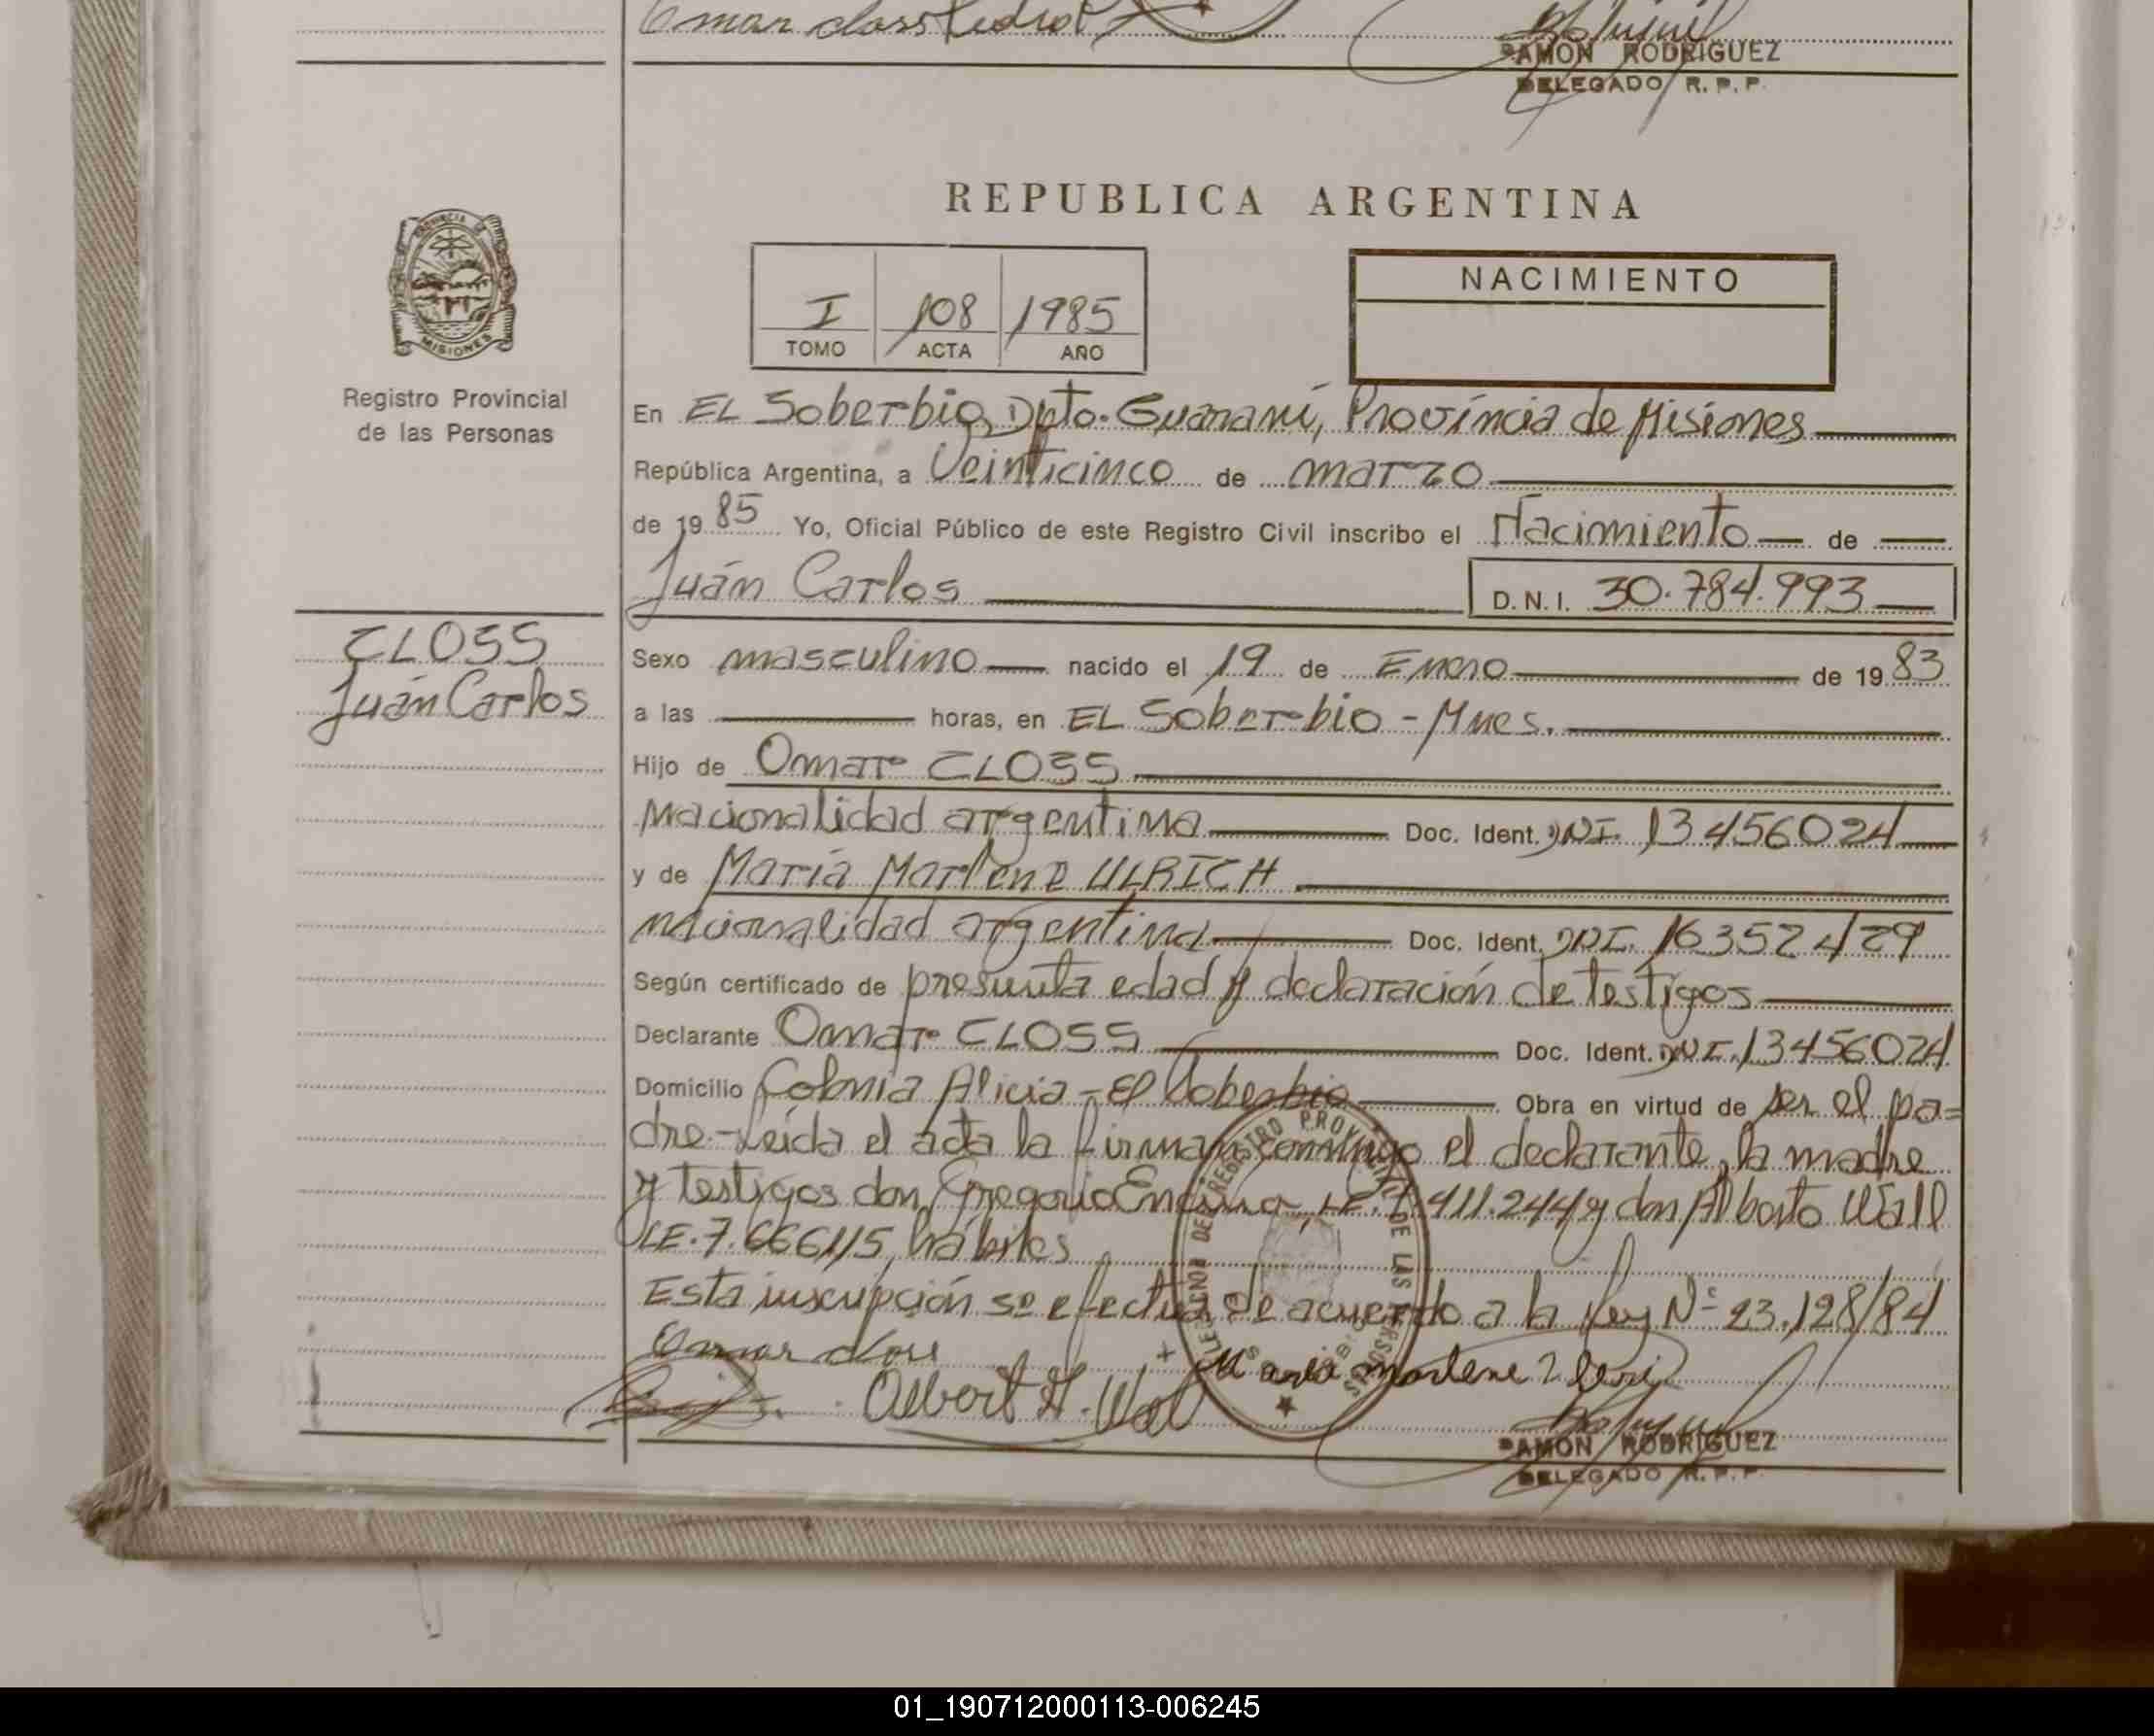 Omar closs
RAMON RODRIGUEZ
DELEGADO R. P. P.
REPUBLICA ARGENTINA
PROVINCIA DE
MISIONES
Registro Provincial
de las Personas
I 108 1985
TOMO ACTA AÑO
NACIMIENTO
En EL Soberbio, Dpto. Guaraní, Província de Misiones
República Argentina, a Veinticinco de marzo
de 1985 Yo, Oficial Público de este Registro Civil inscribo el Nacimiento de
Juán Carlos D.N.I. 30.784.993
CLOSS
Juán Carlos
Sexo masculino nacido el 19 de Enero de 1983
a las horas, en EL Soberbio - Mnes.
Hijo de Omar CLOSS
Nacionalidad argentina Doc. Ident. DNI. 13456024
y de María Marlene ULRICH
nacionalidad argentina Doc. Ident. DNI. 16352429
Según certificado de presunta edad y declaración de testigos
Declarante Omar CLOSS Doc. Ident. DNI. 13456024
Domicilio Colonia Alicia - El Soberbio Obra en virtud de ser el pa=
dre - Leída el acta la firman conmigo el declarante, la madre
y testigos don Gregorio Encina, LE. 411.244 y don Alberto Wall
LE. 7.666115, hábiles
Esta inscripción se efectua de acuerdo a la Ley Nº 23.128/84
Omar closs
Albert H. Wal
Maria marlene
DELEGACION DEL REGISTRO PROVINCIAL DE LAS PERSONAS
RAMON RODRIGUEZ
DELEGADO R. P. P.
01_190712000113-006245